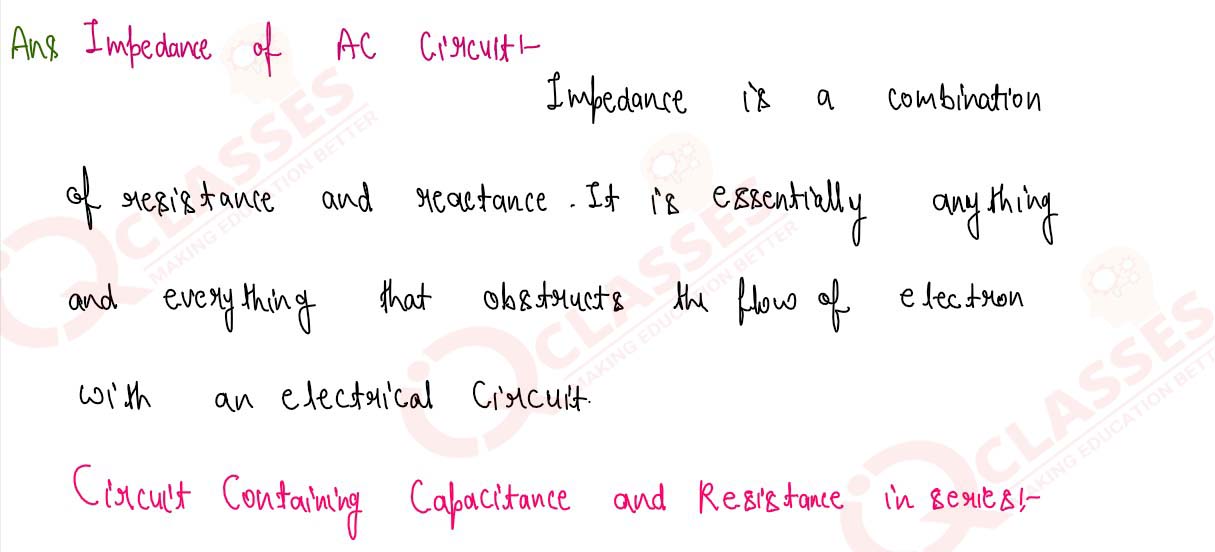 Ans Impedance of AC Circuit:-
Impedance is a combination
of resistance and reactance. It is essentially anything
and everything that obstructs the flow of electron
with an electrical Circuit.
Circuit Containing Capacitance and Resistance in series:-
QCLASSES
MAKING EDUCATION BETTER
QCLASSES
MAKING EDUCATION BETTER
QCLASSES
MAKING EDUCATION BETT